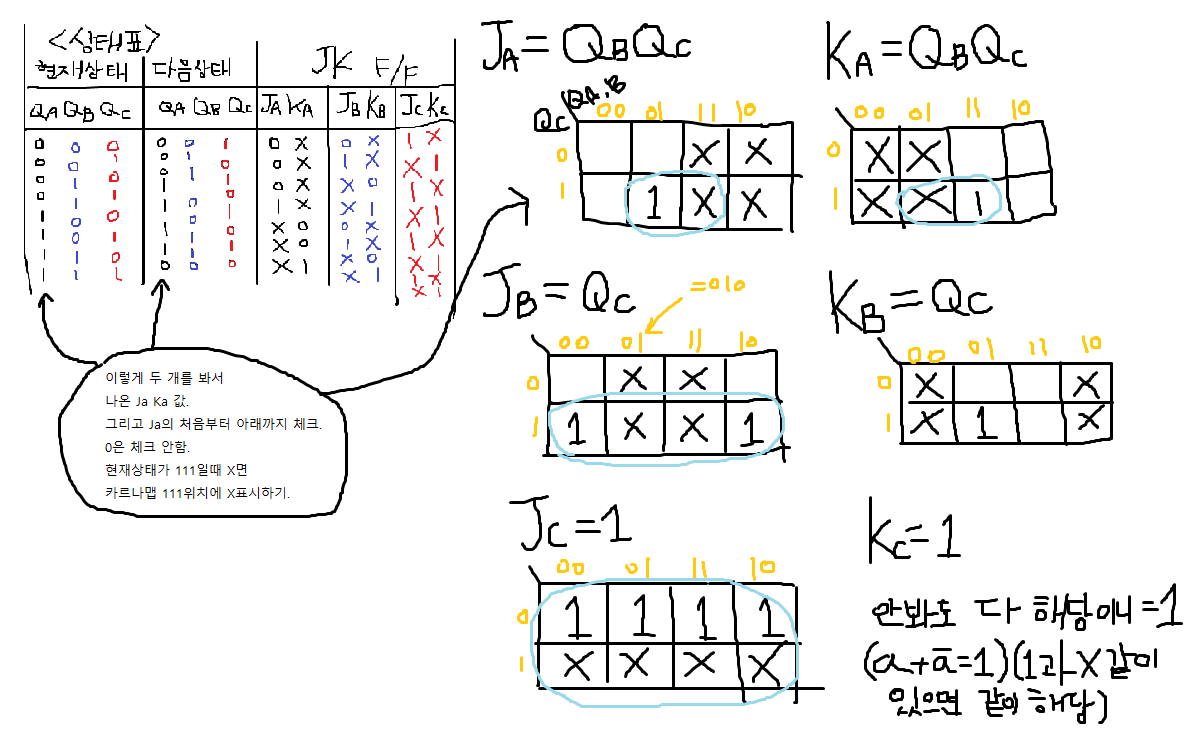 <상태표>
현재상태 다음상태 JK F/F
QA QB QC QA QB QC JA KA JB KB JC KC
0 0 0 0 0 1 0 X 0 X 1 X
0 0 1 0 1 0 0 X 1 X X 1
0 1 0 0 1 1 0 X X 0 1 X
0 1 1 1 0 0 1 X X 1 X 1
1 0 0 1 0 1 X 0 0 X 1 X
1 0 1 1 1 0 X 0 1 X X 1
1 1 0 1 1 1 X 0 X 0 1 X
1 1 1 0 0 0 X 1 X 1 X 1
이렇게 두 개를 봐서
나온 Ja Ka 값.
그리고 Ja의 처음부터 아래까지 체크.
0은 체크 안함.
현재상태가 111일때 X면
카르나맵 111위치에 X표시하기.
JA=QBQC
QA,B
QC 00 01 11 10
0 X X
1 1 X X
KA=QBQC
00 01 11 10
0 X X
1 X X 1
JB=QC
=010
00 01 11 10
0 X X
1 1 X X 1
KB=QC
00 01 11 10
0 X X
1 X 1 X
JC=1
00 01 11 10
0 1 1 1 1
1 X X X X
KC=1
안봐도 다 해당이니=1
(a+ā=1)(1과 X같이
있으면 같이 해당)